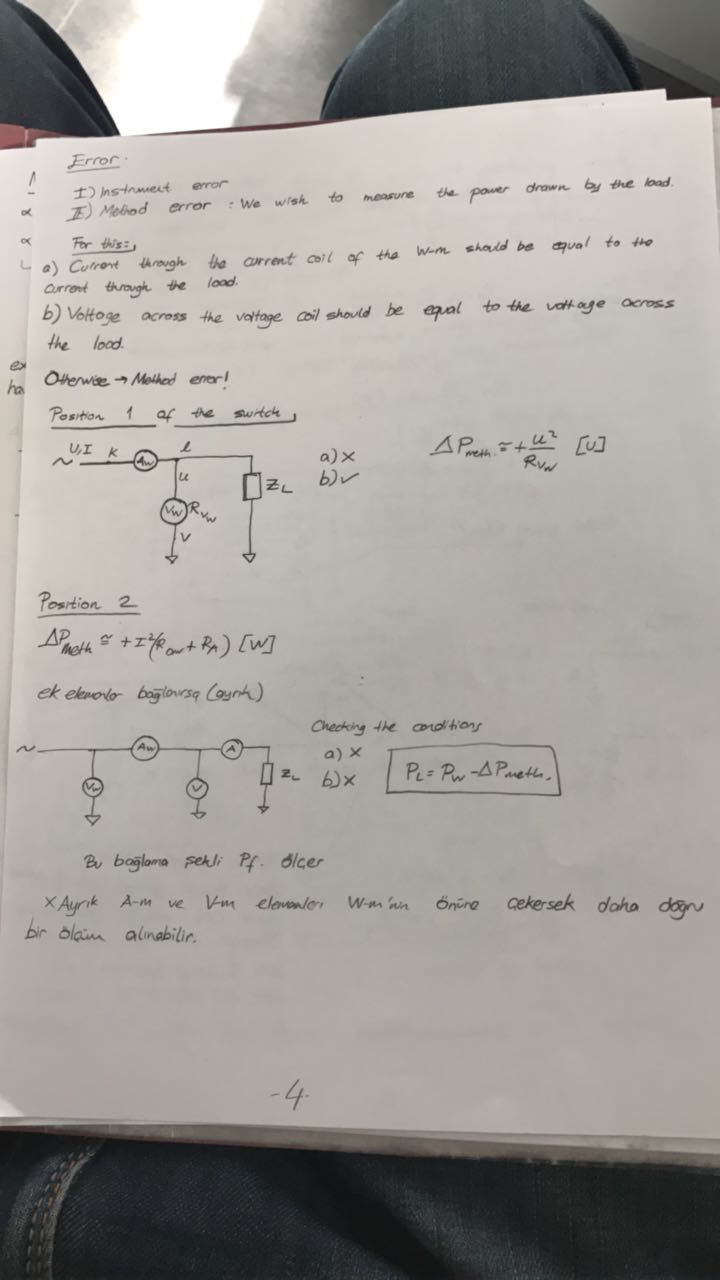 Error.
I) Instrument error
II) Method error : We wish to measure the power drawn by the load.
For this:
a) Current through the current coil of the W-m should be equal to the
current through the load.
b) Voltage across the voltage coil should be equal to the voltage across
the load.
ex
ha
Otherwise → Method error!
Position 1 of the switch
U,I K Aw l
u
Vw RVw
v
ZL
a) x
b) ✓
ΔPmeth. ≅ + U²/RVw [U]
Position 2
ΔPmeth ≅ + I²(Raw + RA) [W]
ek elemanlar bağlanırsa (ayrık)
~ Aw A
Vw V ZL
Checking the conditions
a) x
b) x
PL = PW - ΔPmeth.
Bu bağlama şekli Pf. ölçer
x Ayrık A-m ve V-m elemanları W-m'nin önüne çekersek daha doğru
bir ölçüm alınabilir.
-4-